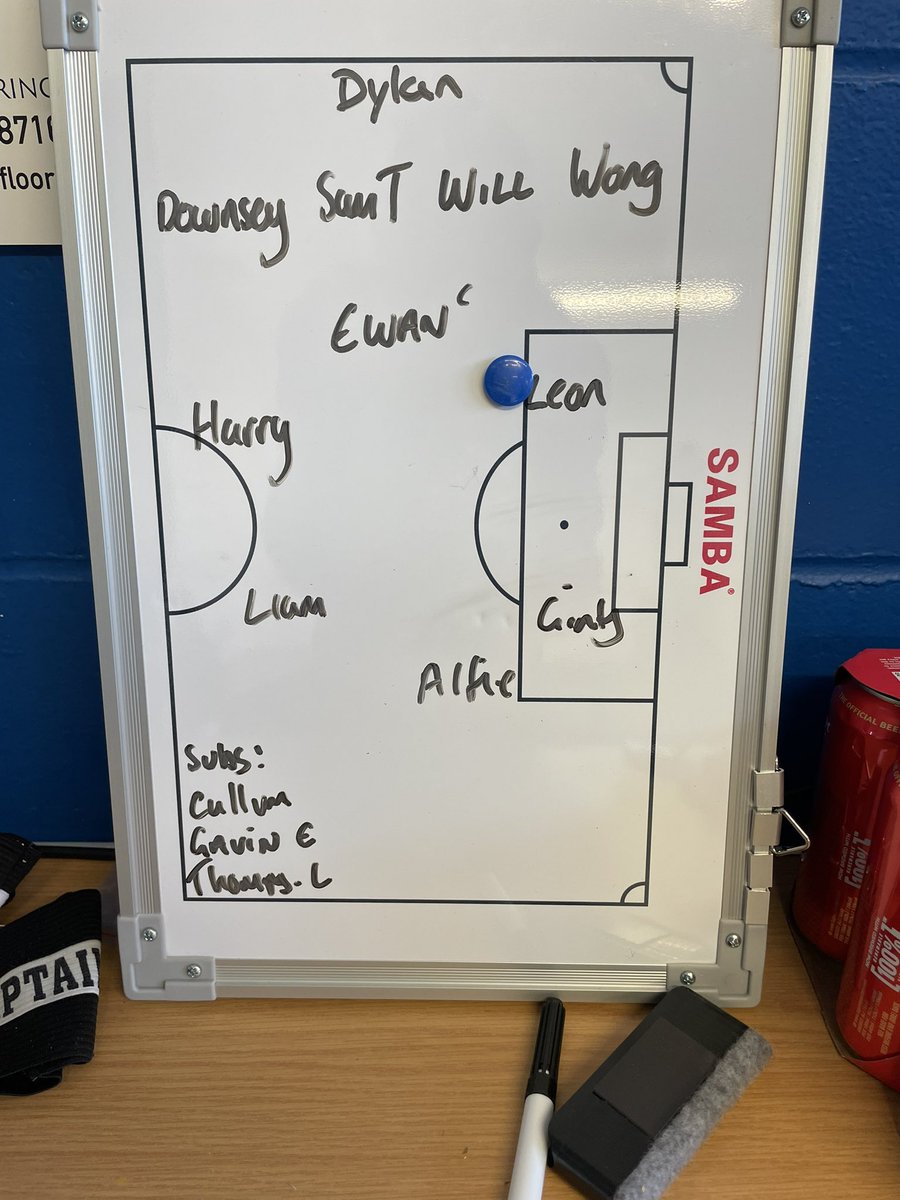 RING
8716
floor
Dylan
Downsey Sam T Will Wong
EWAN c
Leon
Harry
SAMBA®
Liam
Ginty
Alfie
Subs:
Cullum
Gavin E
Thompy. L
PTAIN